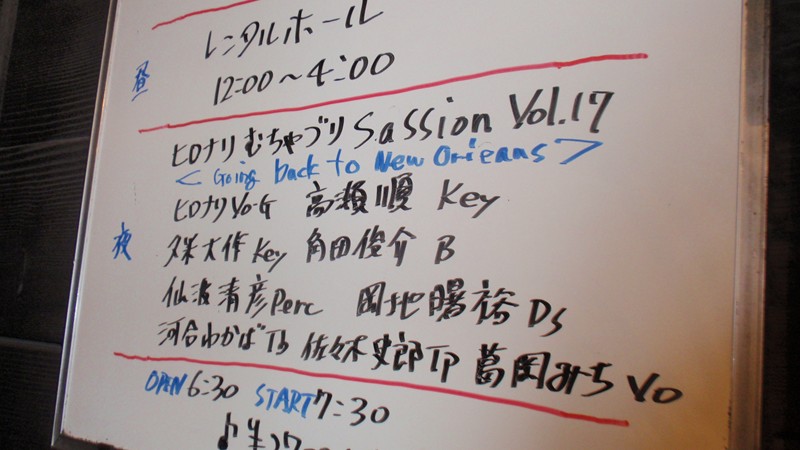 レンタルホール
昼
12:00〜4:00
ヒロナリむちゃブリSassion Vol.17
<Going back to New Orieans>
ヒロナリVo-G 高瀬順 Key
夜
久米大作Key 角田俊介 B
仙波清彦Perc 岡地曙裕 Ds
河合わかばTb 佐々木史郎Tp 葛岡みち Vo
OPEN6:30 START7:30